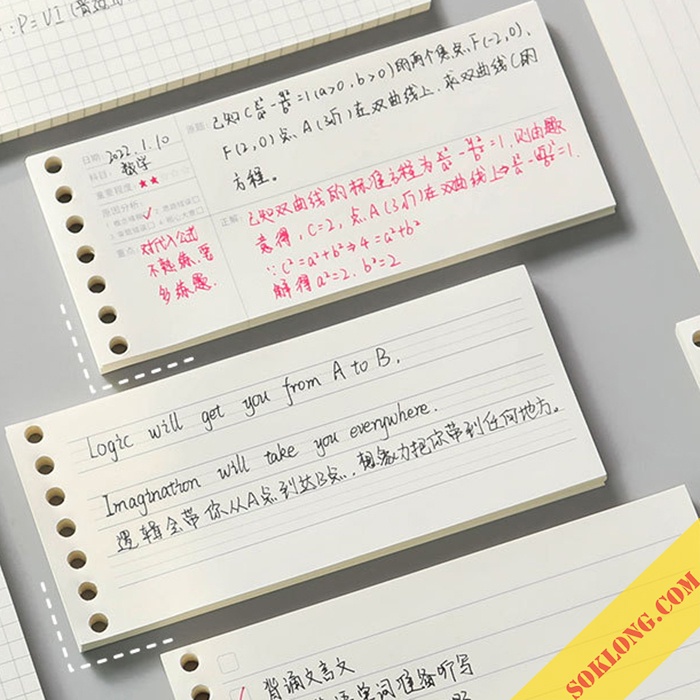 :P=UI
日期: 2022.1.10
科目: 数学
重要程度: ★★☆☆☆
原因分析:
重点: 对代入公式
不熟练,要
多练题.
原题: 已知C x²/a² - y²/b² =1(a>0,b>0)的两个焦点,F(-2,0),
F(2,0)点,A(3,√7)在双曲线上,求双曲线C的
方程。
正解: 已知双曲线的标准方程为 x²/a² - y²/b² =1,则由题
意得,C=2,点A(3,√7)在双曲线上
∵c²=a²+b²⇒4=a²+b²
解得a²=2.b²=2
Logic will get you from A to B,
Imagination will take you everywhere.
逻辑会带你从A点到达B点,想象力把你带到任何地方。
背诵文言文
单词准备听写
SOKLONG.COM